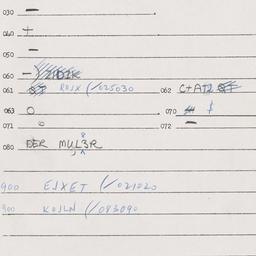 030 —
040 +
050 —
060 —
061 ROJX (/025030 062 C+ATZ
063 O 070 $
071 o 072 —
080 DER MUL3R 8
900 EJXET (/021020
900 KOJLN (/083090